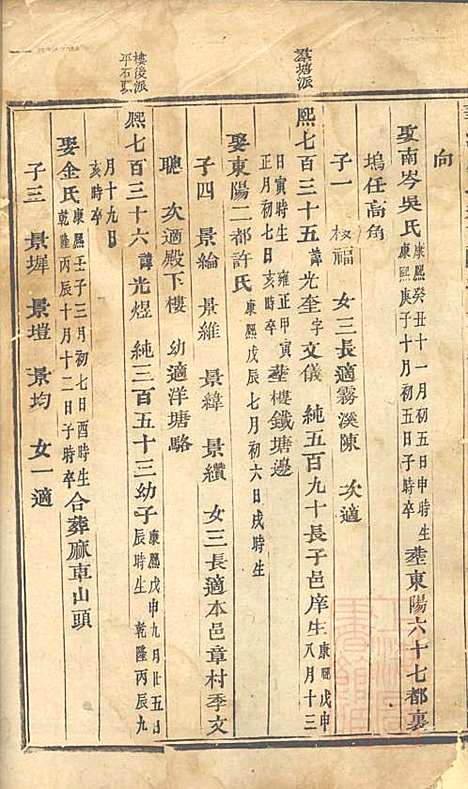 向
娶南岑吳氏康熙癸丑十一月初五日申時生康熙庚子十月初五日子時卒塟東陽六十七都裏
塢任高角
子一 椒福 女三長適霧溪陳 次適
塟塘派
熙七百三十五諱光奎字文儀 純五百九十長子邑庠生康熙戊申八月十三
日寅時生雍正甲寅正月初七日亥時卒塟樓鐵塘邊
娶東陽二都許氏康熙戊辰七月初六日戌時生
子四 景綸 景維 景緯 景纘 女三長適本邑章村季文
聰 次適殿下樓 幼適洋塘駱
樓後派
平石
熙七百三十六諱光煜 純三百五十三幼子康熙戊申九月廿五日辰時生乾隆丙辰九
月十九日亥時卒
娶金氏康熙壬子三月初七日酉時生乾隆丙辰十月十二日子時卒合葬麻車山頭
子三 景墀 景塏 景均 女一適